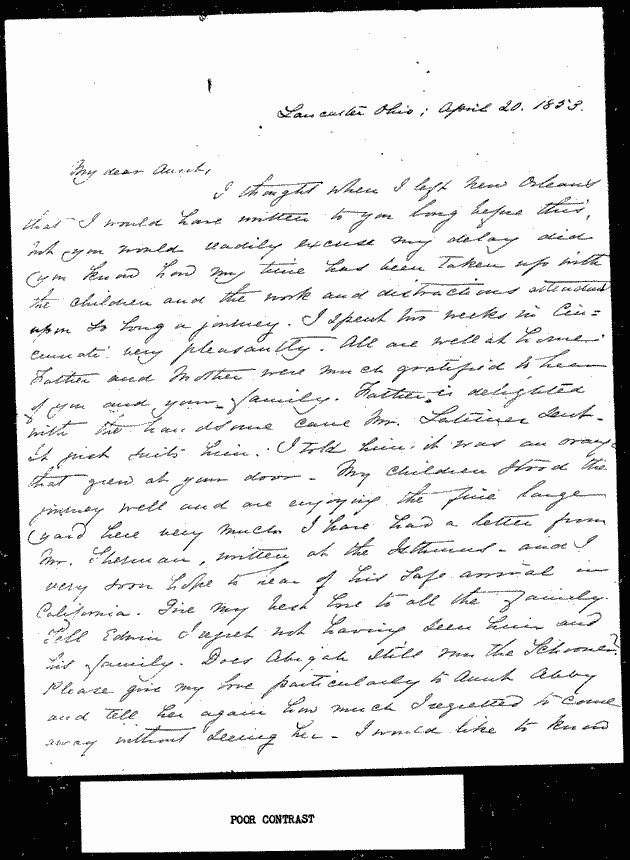 Lancaster Ohio; April 20. 1853.
My dear Aunt,
I thought when I left New Orleans
that I would have written to you long before this,
but you would readily excuse my delay did
you know how my time has been taken up with
the children and the work and distractions attendant
upon so long a journey. I spent two weeks in Cin=
cinnati very pleasantly. All are well at home.
Father and Mother were much gratified to hear
of you and your family. Father is delighted
with the handsome cane Mr. Latimer sent.
It just suits him. I told him it was an orange
that grew at your door - My children stood the
journey well and are enjoying the fine large
yard here very much. I have had a letter from
Mr. Sherman, written at the Isthmus - and I
very soon hope to hear of his safe arrival in
California. Give my best love to all the family.
Tell Edwin I regret not having seen him and
his family. Does Abigah still run the Schooner?
Please give my love particularly to Aunt Abby
and tell her again how much I regretted to come
away without seeing her - I would like to know
POOR CONTRAST